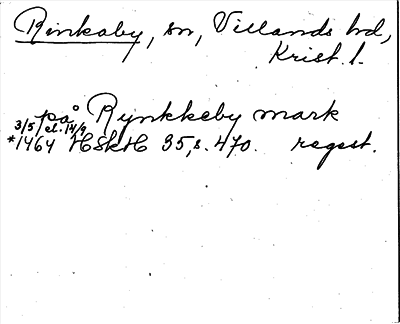 Rinkaby, sn, Villands hd,
Krist. l.
på Rynkkeby mark
3/5 el. 14/9
*1464 HSkH 35, s. 470. regest.